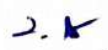 2. K